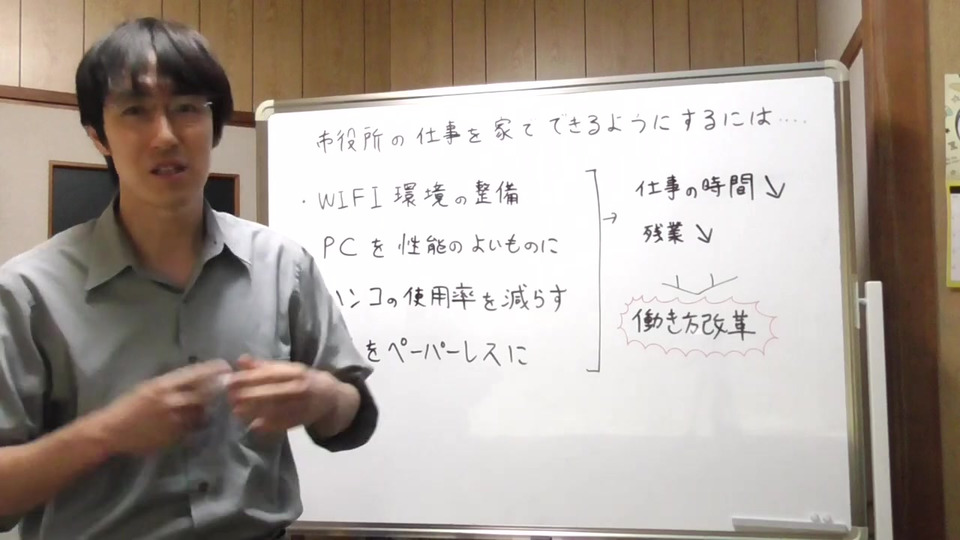 市役所の仕事を家でできるようにするには....
・WIFI環境の整備
PCを性能のよいものに
ハンコの使用率を減らす
をペーパーレスに
→
仕事の時間↘
残業↘
働き方改革